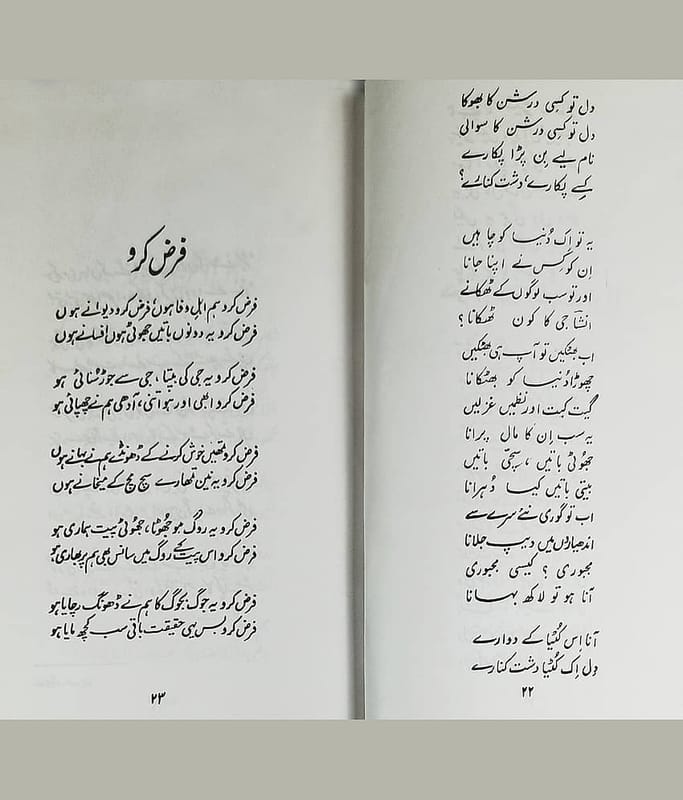 دل تو کسی درشن کا بھوکا
دل تو کسی درشن کا سوالی
نام لیے بِن پڑا پکارے
کِسے پکارے، دشت کنارے؟
یہ تو اِک دُنیا کو چاہیں
اِن کو کِس نے اپنا جانا
اور تو سب لوگوں کے ٹھکانے
انشاؔ جی کا کون ٹھکانا؟
اب بھٹکیں تو آپ ہی بھٹکیں
چھوڑا دُنیا کو بھٹکانا
گیت کبت اور نظمیں غزلیں
یہ سب اِن کا مال پرانا
جھُوٹی باتیں، سچّی باتیں
بیتی باتیں کیسا دُہرانا
اب تو گوری نئے سِرے سے
اندھیاروں میں دیپ جلانا
مجبوری؟ کیسی مجبوری
آنا ہو تو لاکھ بہانا
آنا اِس کُٹیا کے دوارے
دِل اِک کُٹیا دشت کنارے
۲۲
فرض کرو
فرض کرو ہم اہلِ وفا ہوں، فرض کرو دیوانے ہوں
فرض کرو یہ دونوں باتیں جھوٹی ہوں افسانے ہوں
فرض کرو یہ جی کی بپتا، جی سے جوڑ سُنائی ہو
فرض کرو ابھی اور ہو اتنی، آدھی ہم نے چھپائی ہو
فرض کرو تمھیں خوش کرنے کے ڈھونڈے ہم نے بہانے ہوں
فرض کرو یہ نین تمھارے سچ مچ کے میخانے ہوں
فرض کرو یہ روگ ہو جھُوٹا، جھوٹی پیت ہماری ہو
فرض کرو اس پیت کے روگ میں سانس بھی ہم پر بھاری ہو
فرض کرو یہ جوگ بجوگ کا ہم نے ڈھونگ رچایا ہو
فرض کرو بس یہی حقیقت باقی سب کچھ مایا ہو
۲۳